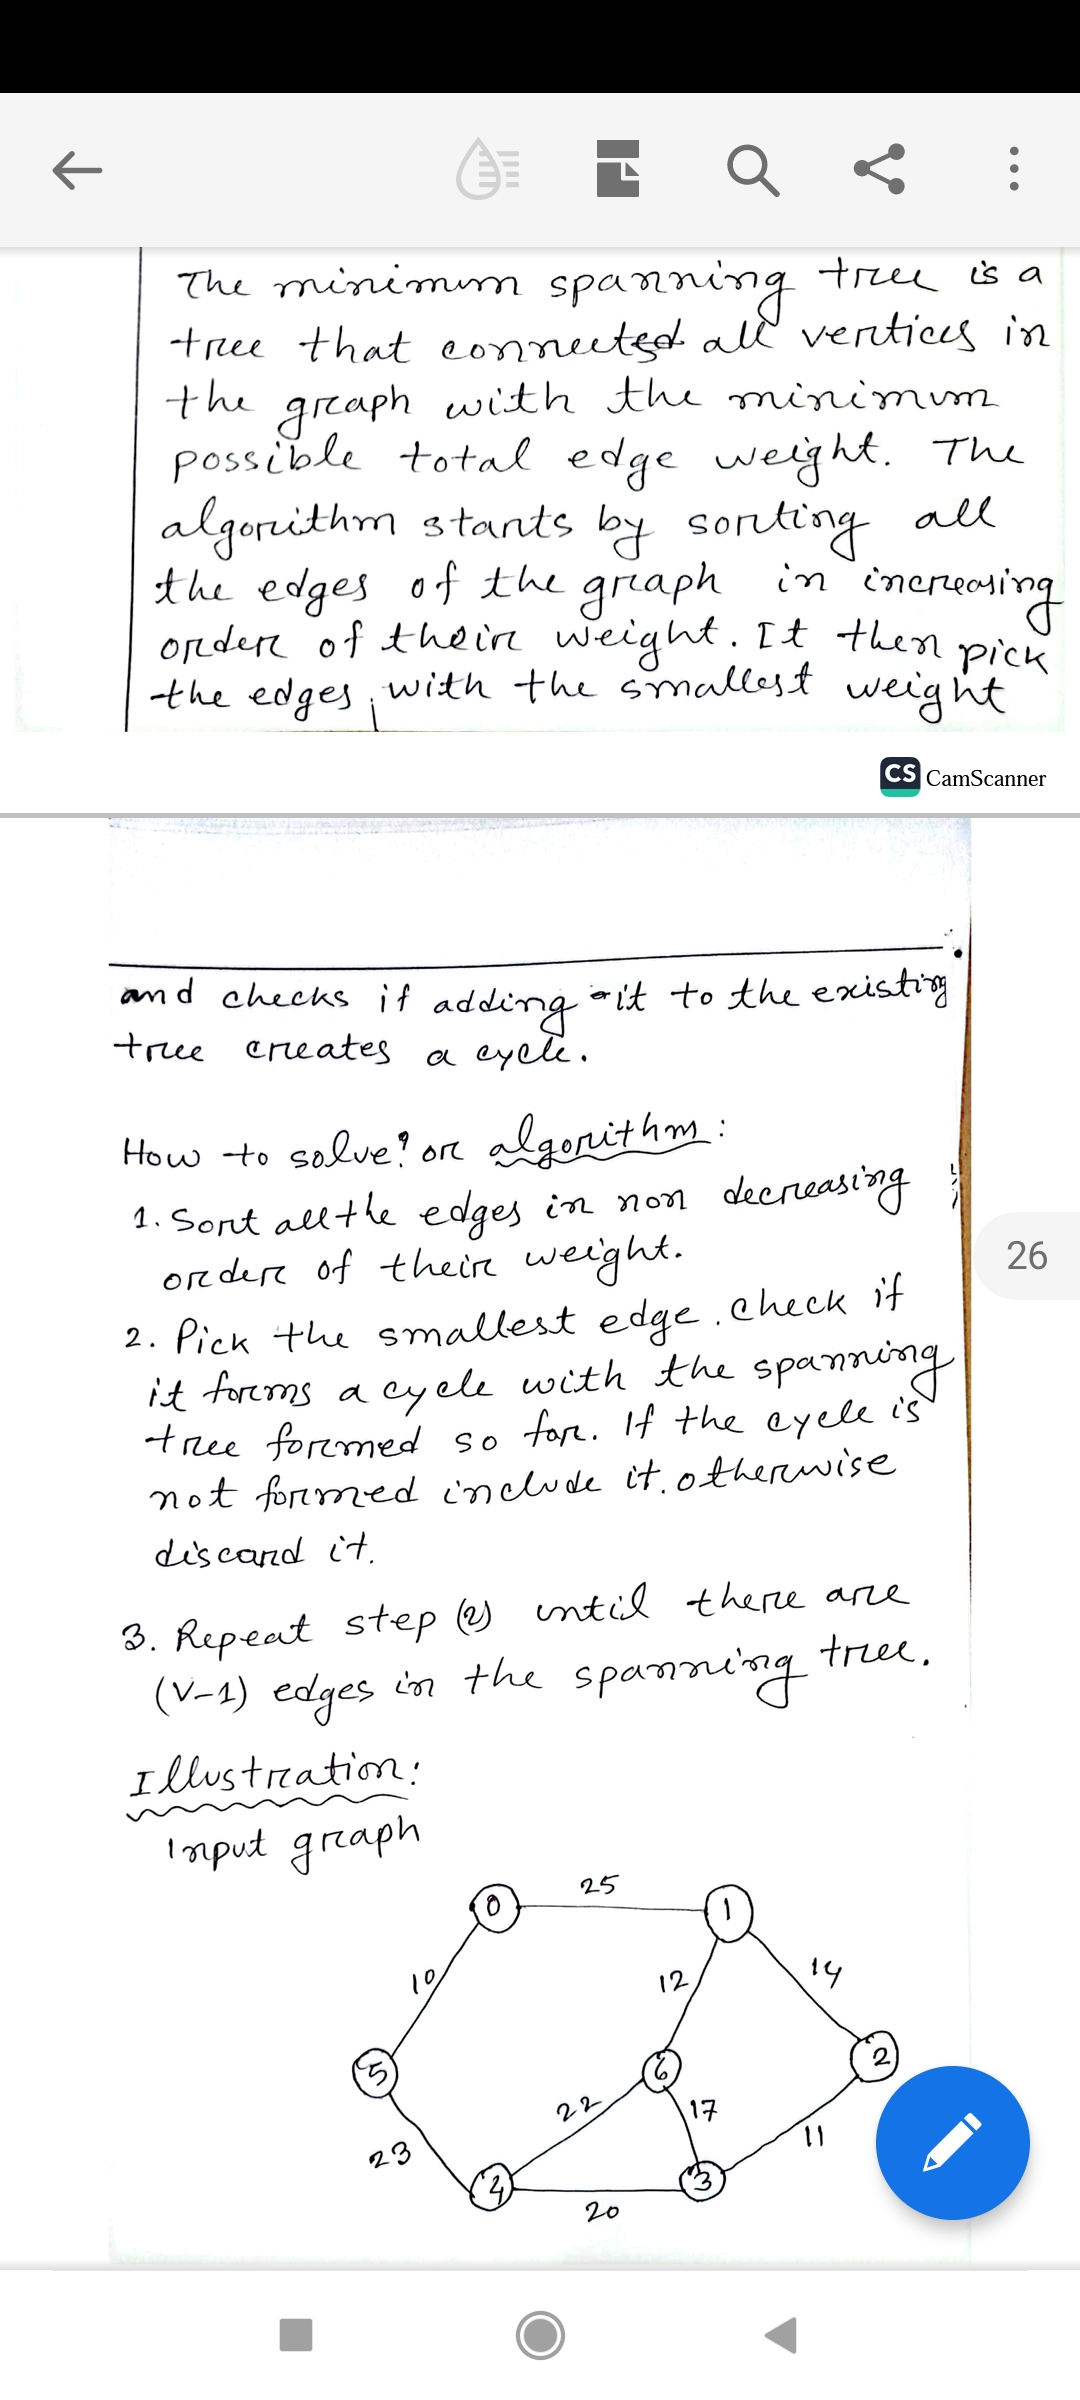 The minimum spanning tree is a
tree that connected all vertices in
the graph with the minimum
possible total edge weight. The
algorithm starts by sorting all
the edges of the graph in increasing
order of their weight. It then pick
the edges, with the smallest weight
CS CamScanner
and checks if adding it to the existing
tree creates a cycle.
How to solve? or algorithm:
1. Sort all the edges in non decreasing
order of their weight.
2. Pick the smallest edge. Check if
it forms a cycle with the spanning
tree formed so far. If the cycle is
not formed include it. otherwise
discard it.
3. Repeat step (2) until there are
(V-1) edges in the spanning tree.
26
Illustration:
Input graph
25
0
1
10
12
14
5
6
2
22
17
11
23
4
3
20